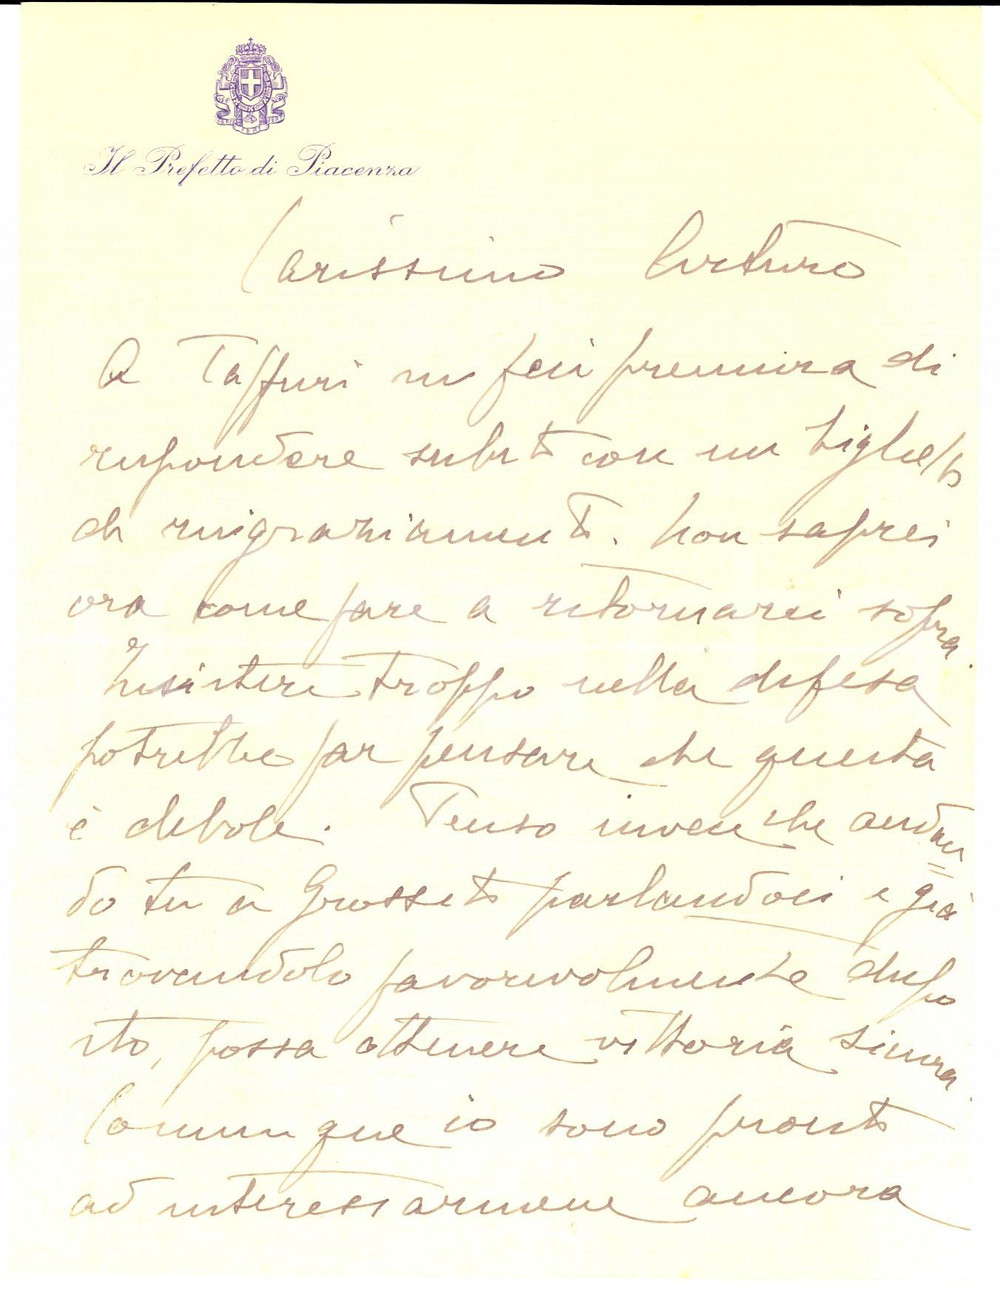 Il Prefetto di Piacenza
Carissimo Arturo
A Taffuri mi feci premura di
rispondere subito con un biglietto
di ringraziamento. Non saprei
ora come fare a ritornarci sopra.
Insistere troppo nella difesa
potrebbe far pensare che questa
è debole. Penso invece che andan=
do tu a Grosseto parlandoci e già
trovandolo favorevolmente dispo
sto, possa ottenere vittoria sicura.
Comunque io sono pronto
ad interessarmene ancora